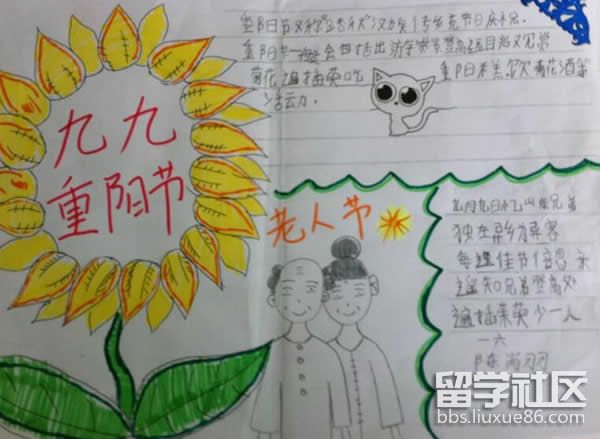 九九
重阳节
重阳节又称"踏秋"汉族传统节日庆祝
重阳节一般会包括出游赏景登高远目眺又览赏
菊花遍插茱萸吃重阳糕、饮菊花酒等
活动.
老人节
九月九日忆山东兄弟
独在异乡为异客
每逢佳节倍思亲
遥知兄弟登高处
遍插茱萸少一人
一六
留学社区
bbs.liuxue86.com